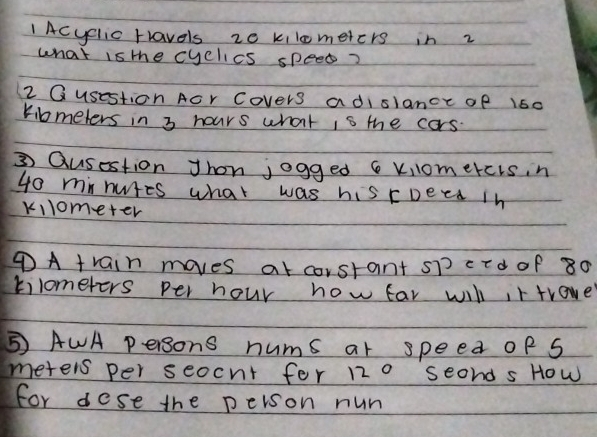 1 A cyclic travels 20 kilometers in 2
what is the cyclics speed ?
2 Qusestion A cr covers a dislance of 150
kilometers in 3 hours what is the cars.
3) Qusestion Jhon jogged 6 kilometers in
40 minutes what was his speed in
kilometer
4) A train moves at constant speed of 80
kilometers per hour how far will it trave
5) AwA persons nums at speed of 5
meters per seocnt for 120 seonds How
for dose the person nun